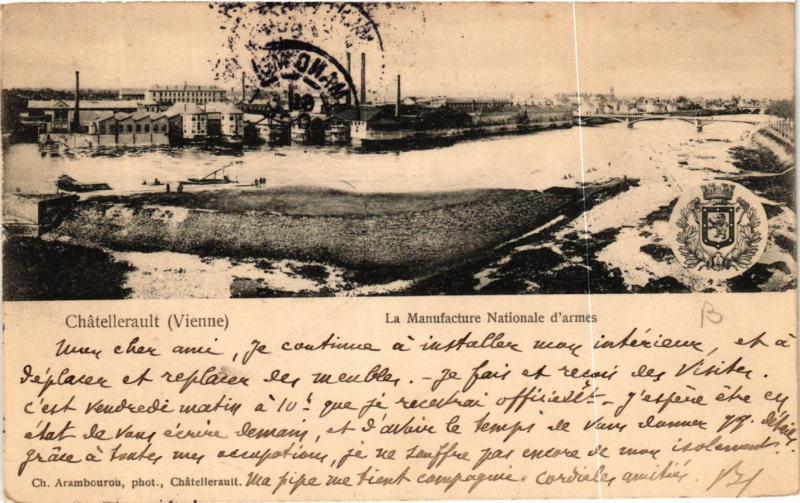 Châtellerault (Vienne)
La Manufacture Nationale d'armes
B
Mon cher ami, Je continue à installer mon intérieur, et à
déplacer et replacer des meubles. - Je fais et reçois des visites.
C'est vendredi matin à 10h que je recevrai officiellt - J'espère être en
état de vous écrire demain, et d'avoir le temps de vous donner qq. détails
grâce à toutes mes occupations, je ne souffre pas encore de mon isolement.
Ch. Arambourou, phot., Châtellerault. Ma pipe me tient compagnie. Cordiales amitiés.